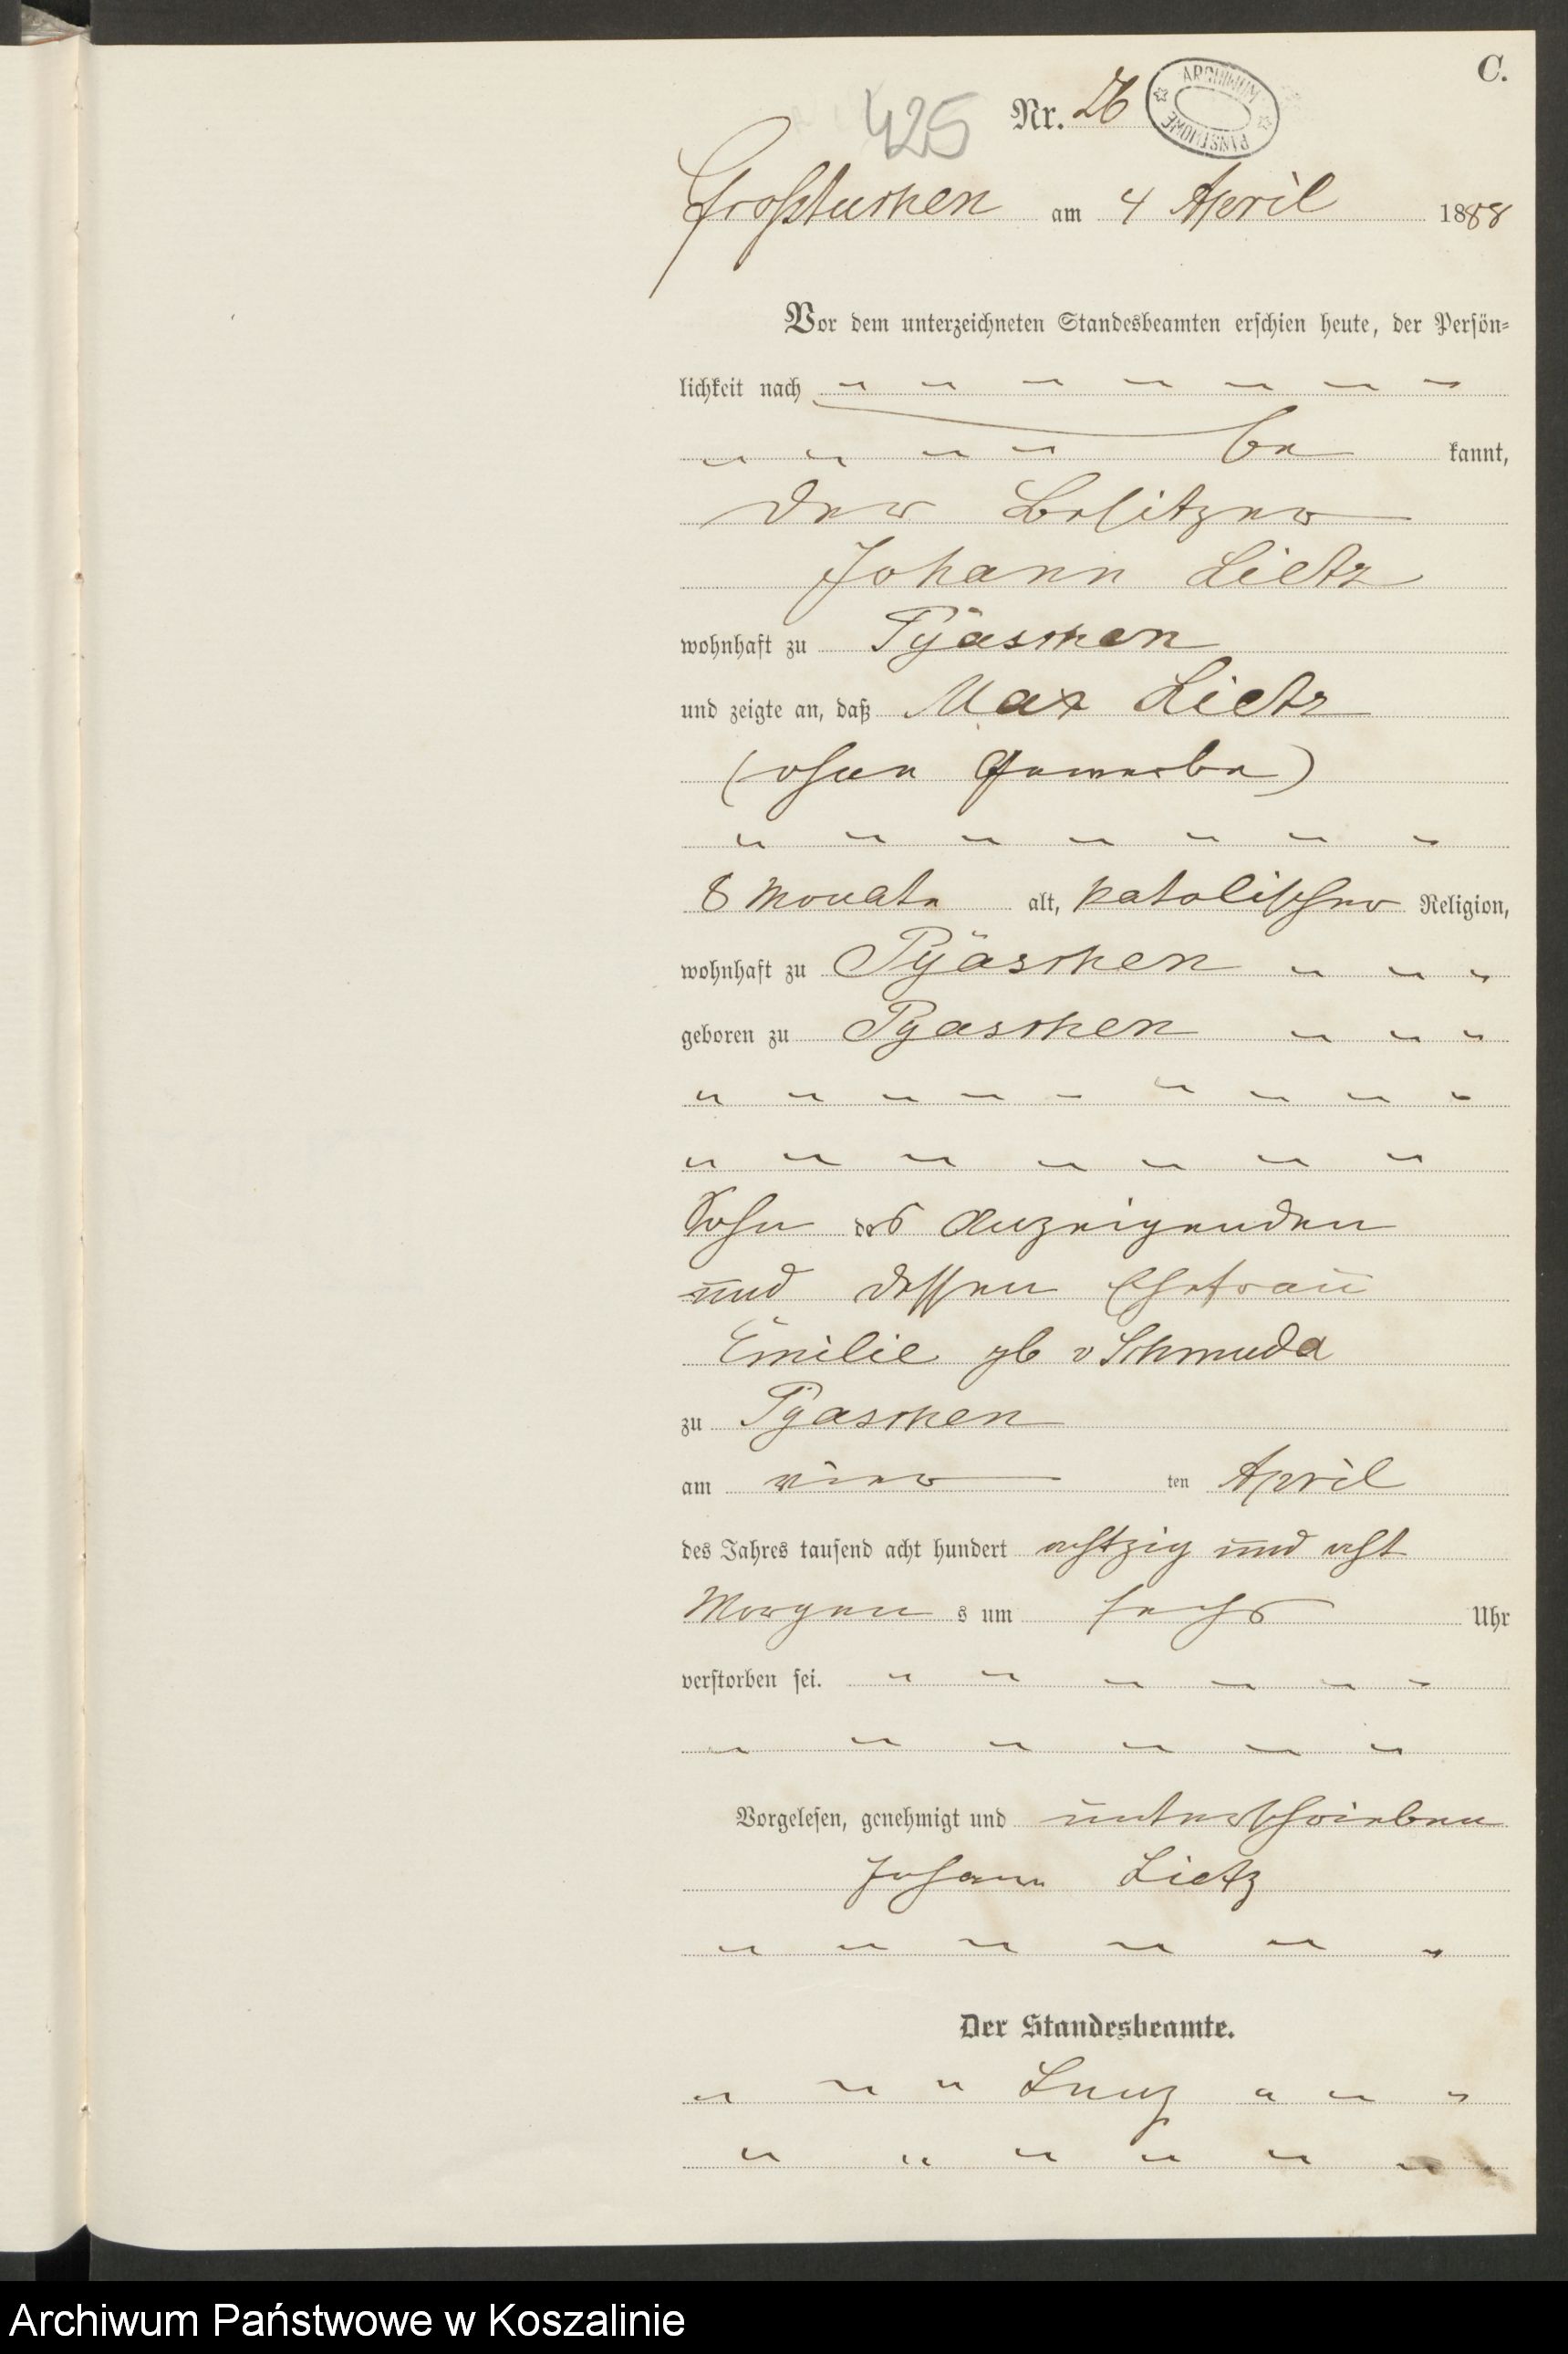 C.
425 Nr. 26 ARCHIWUM PAŃSTWOWE
Großtuchen am 4 April 1888
Vor dem unterzeichneten Standesbeamten erschien heute, der Persön=
lichkeit nach
be kannt,
der Besitzer
Johann Lietz
wohnhaft zu Pyaschen
und zeigte an, daß Max Lietz
(ohne Gewerbe)
8 Monate alt, katolischer Religion,
wohnhaft zu Pyaschen
geboren zu Pyaschen
Sohn des Anzeigenden
und dessen Ehefrau
Emilie gb v Schmuda
zu Pyaschen
am vier ten April
des Jahres tausend acht hundert achtzig und acht
Morgen s um sechs Uhr
verstorben sei.
Vorgelesen, genehmigt und unterschrieben
Johann Lietz
Der Standesbeamte.
Archiwum Państwowe w Koszalinie